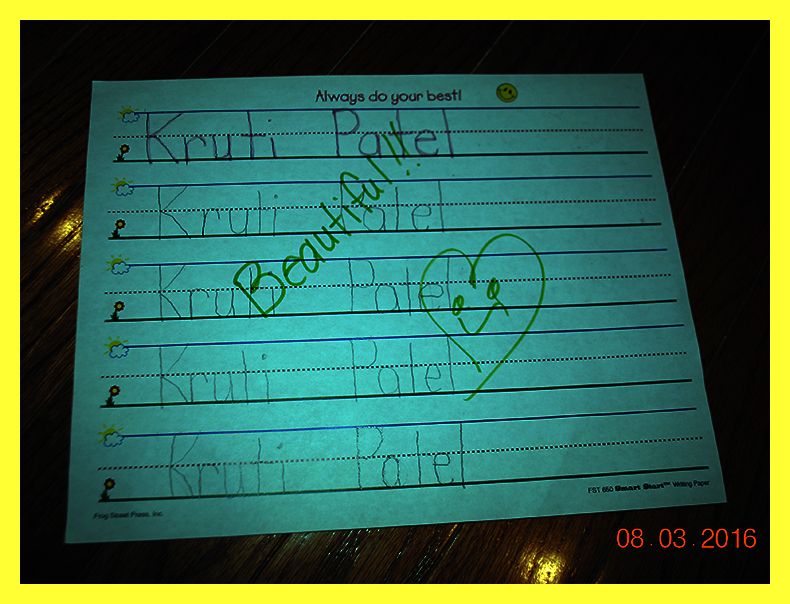 Always do your best!
Kruti Patel
Kruti Patel
Beautiful!!
Kruti Patel
Kruti Patel
Kruti Patel
FST 650 Smart Start™ Writing Paper
Frog Street Press, Inc.
08.03.2016